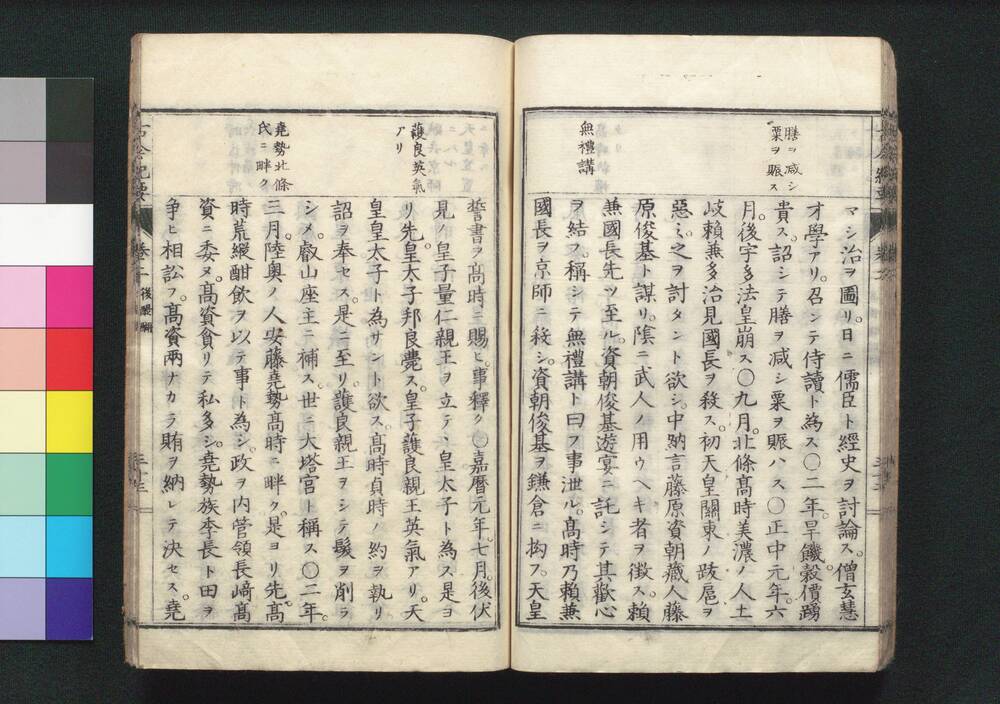 膳ヲ減シ
粟ヲ賑ス
無禮講
マシ治ヲ圖リ。日ニ儒臣ト經史ヲ討論ス。僧玄慧
才學アリ。召ンテ侍讀ト為ス〇二年。旱饑穀價踴
貴ス。詔シテ膳ヲ减シ粟ヲ賑ハス〇正中元年。六
月。後宇多法皇崩ス〇九月。北條髙時美濃ノ人土
岐頼兼多治見國長ヲ殺ス。初天皇關東ノ跋扈ヲ
惡ミ之ヲ討タント欲シ。中納言藤原資朝藏人藤
原俊基ト謀リ。陰ニ武人ノ用ウヘキ者ヲ徴ス。頼
兼國長先ツ至ル。資朝俊基遊宴ニ託シテ其歡心
ヲ結フ。稱シテ無禮講ト曰フ事泄ル。髙時乃頼兼
國長ヲ京師ニ殺シ。資朝俊基ヲ鎌倉ニ拘フ。天皇
護良英氣
アリ
堯勢北條
氏ニ畔ク
誓書ヲ髙時ニ賜ヒ。事釋ク〇嘉暦元年。七月。後伏
見ノ皇子量仁親王ヲ立テヽ皇太子ト為ス是ヨ
リ先。皇太子邦良薨ス。皇子護良親王英氣アリ。天
皇皇太子ト為サント欲ス。髙時貞時ノ約ヲ執リ
詔ヲ奉セス。是ニ至リ。護良親王ヲシテ髮ヲ削ラ
シメ。叡山座主ニ補ス。世ニ大塔宮ト稱ス〇二年。
三月。陸奥ノ人安藤堯勢髙時ニ畔ク。是ヨリ先。髙
時荒縱酣飲ヲ以テ事ト為シ。政ヲ内管領長﨑髙
資ニ委ヌ。髙資貪リテ私多シ。堯勢族季長ト田ヲ
争ヒ相訟フ。髙資兩ナカラ賄ヲ納レテ決セス。堯
卷二 後醍醐